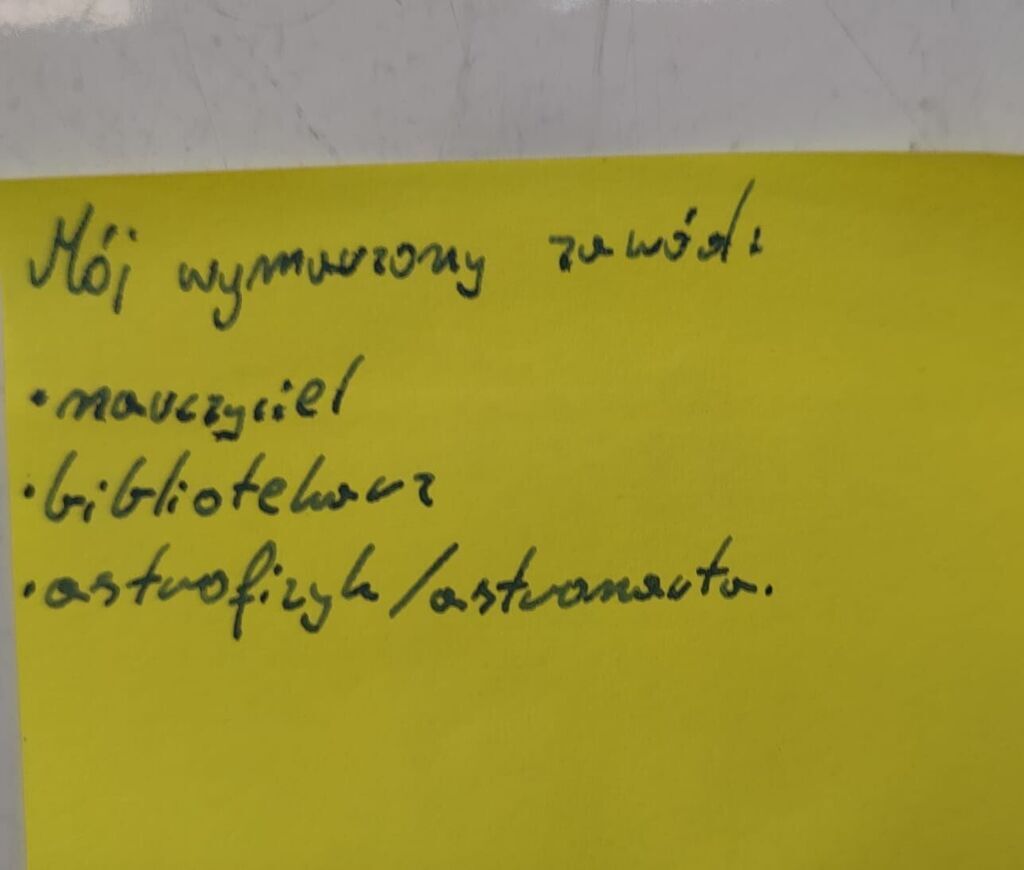 Mój wymarzony zawód:
• nauczyciel
• bibliotekarz
• astrofizyk/astronauta.